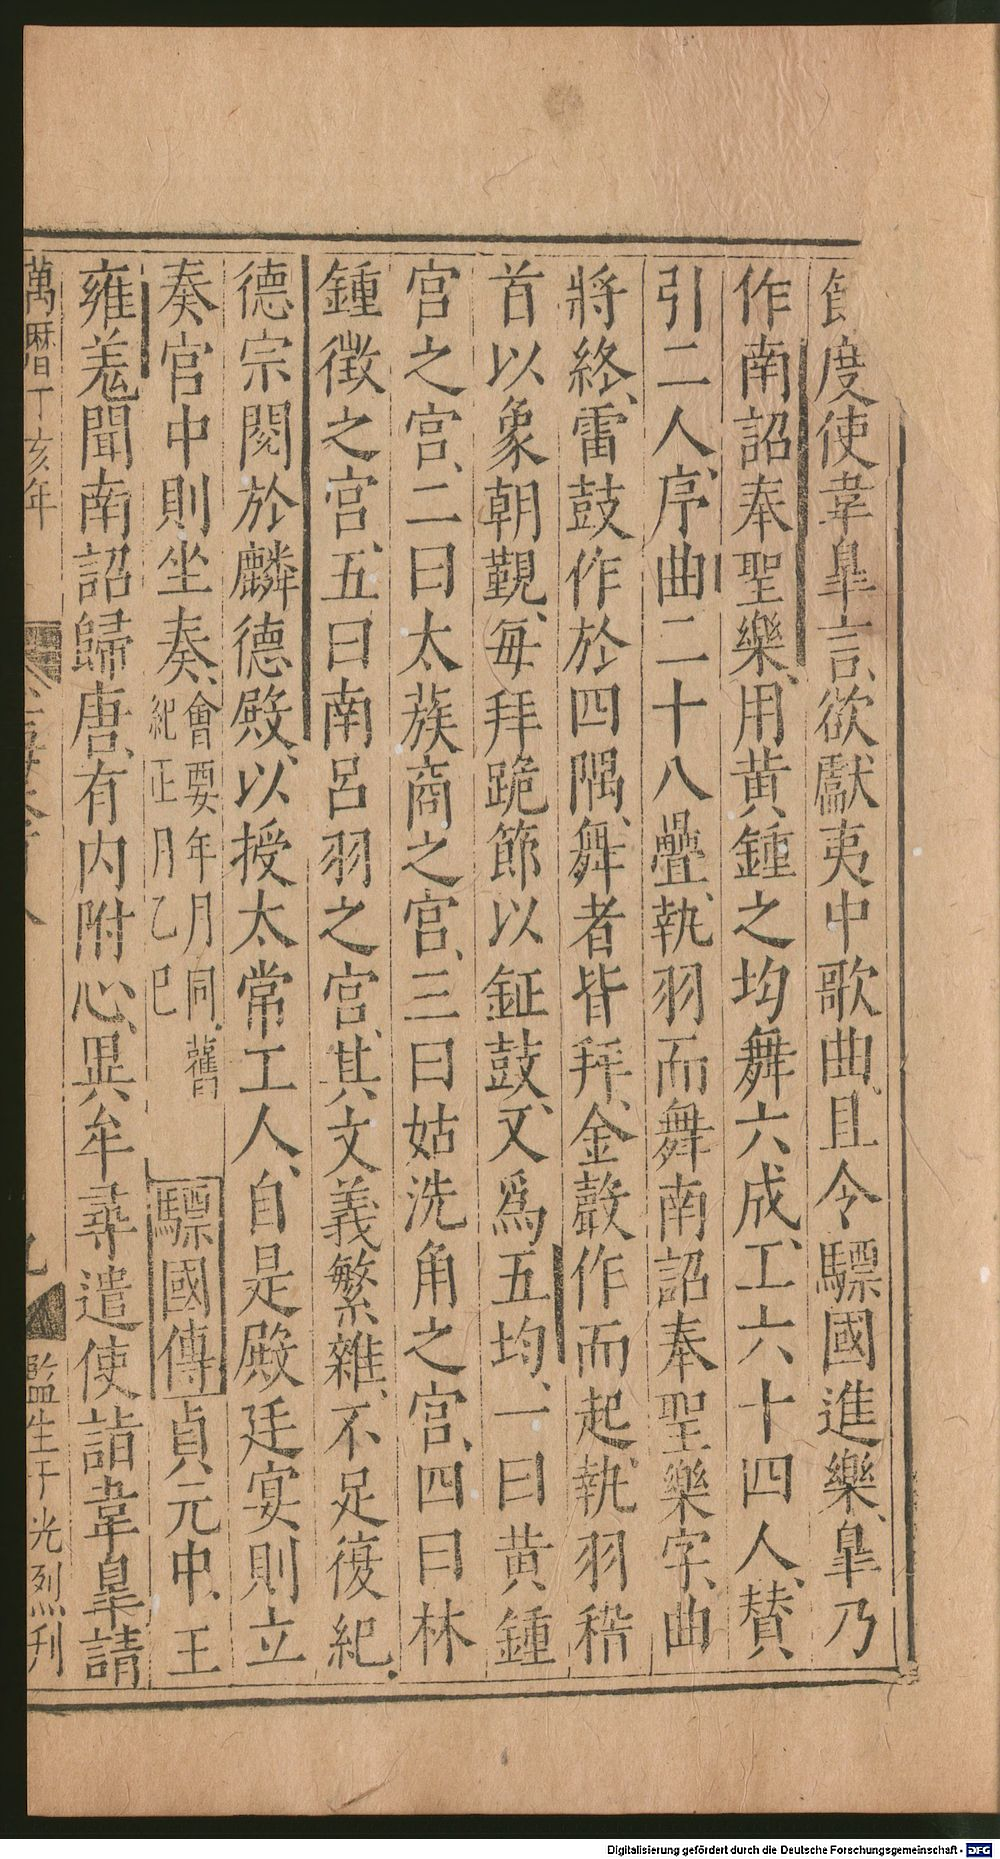 度使韋皐言欲獻夷中歌曲且令驃國進樂皐乃
作南詔奉聖樂用黃鍾之均舞六成工六十四人賛
引二人序曲二十八疊執羽而舞南詔奉聖樂字曲
將終雷鼓作於四隅舞者皆拜金聲作而起執羽稽
首以象朝覲每拜跪節以鉦鼓又爲五均一曰黃鍾
宮之宮二曰太蔟商之宮三曰姑洗角之宮四曰林
鍾徵之宮五曰南呂羽之宮其文義繁雜不足復紀
德宗閱於麟德殿以授太常工人自是殿廷宴則立
奏宮中則坐奏會要年月同舊紀正月乙巳驃國傳貞元中王
雍羗聞南詔歸唐有内附心異牟尋遣使詣韋皐請
萬曆丁亥年
九
監生于光烈刋
Digitalisierung gefördert durch die Deutsche Forschungsgemeinschaft - DFG